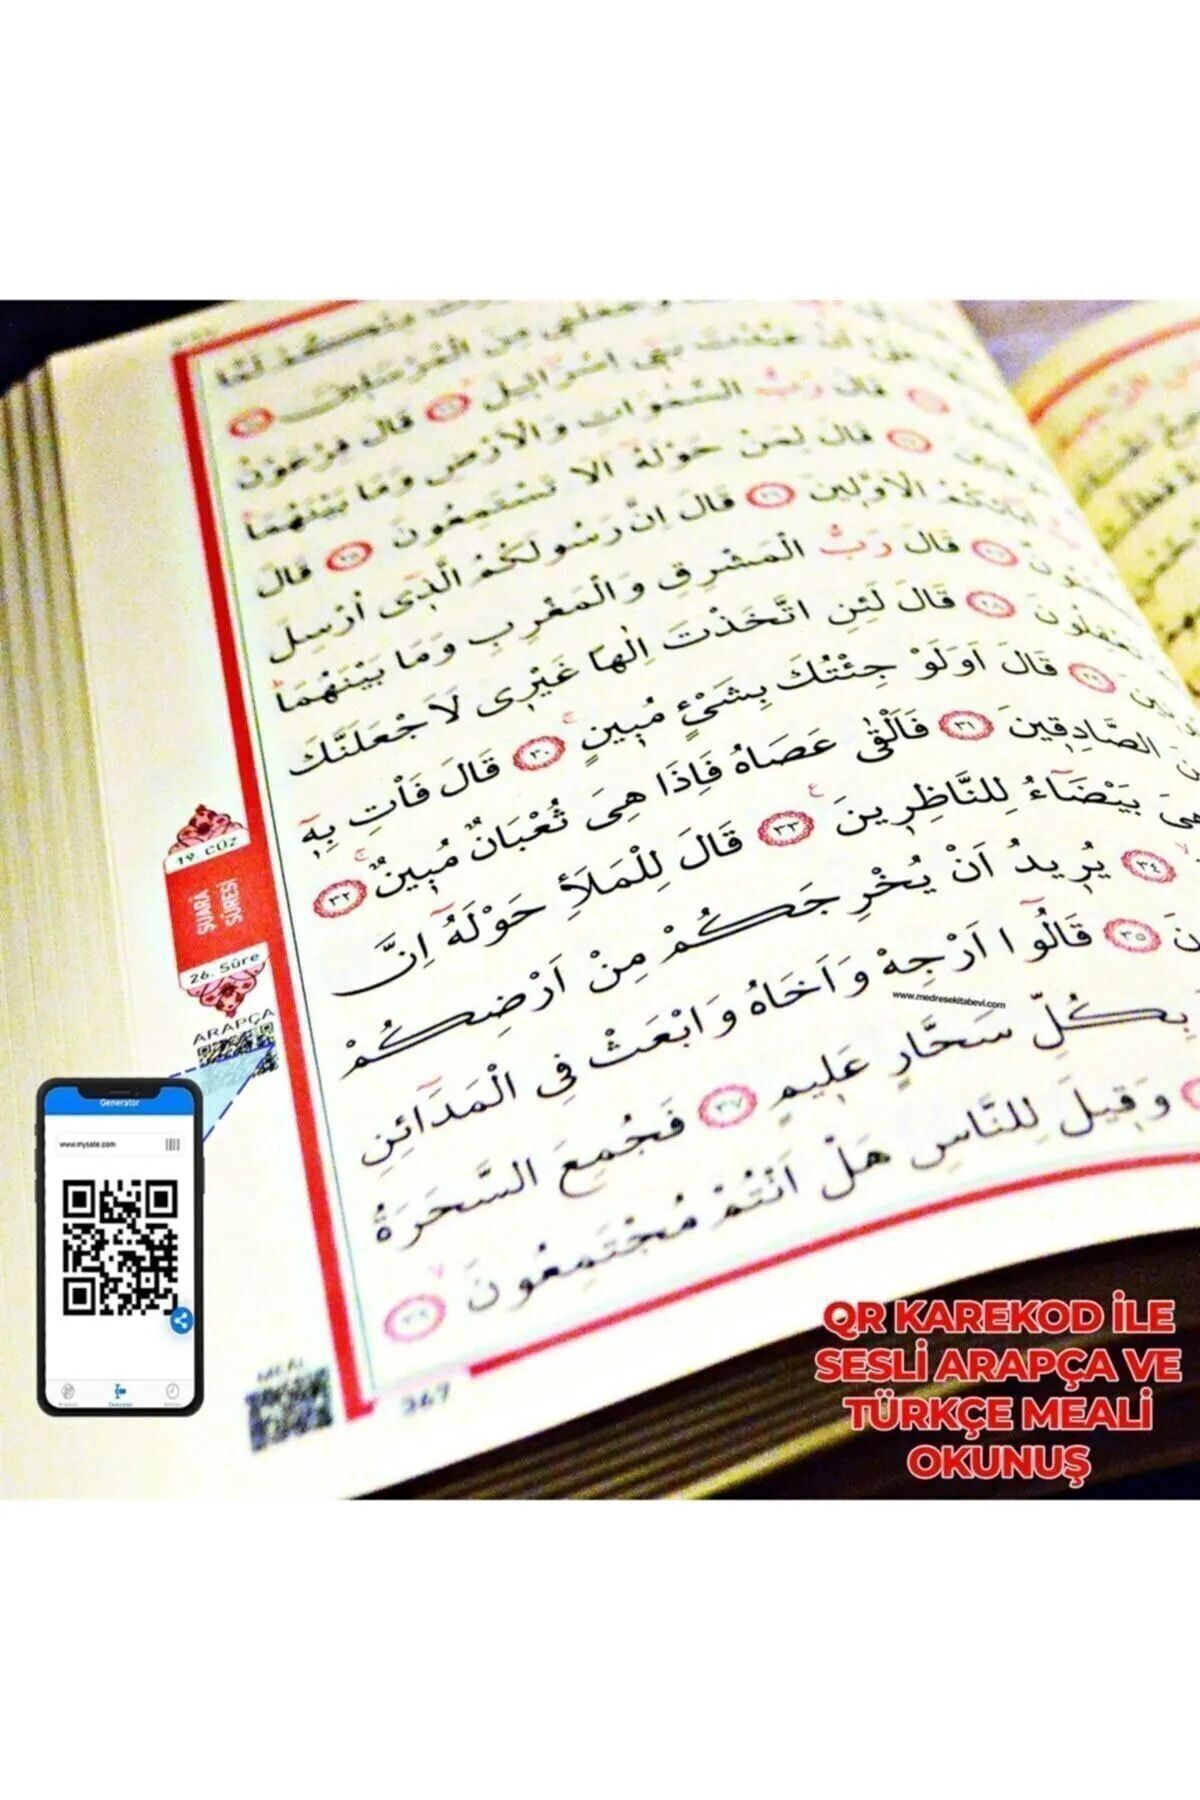 قَالَ فِرْعَوْنُ
قَالَ رَبُّ السَّمٰوَاتِ وَالْاَرْضِ وَمَا بَيْنَهُمَا
قَالَ لِمَنْ حَوْلَهُٓ اَلَا تَسْتَمِعُونَ ﴿٢٥﴾ قَالَ
اٰبَٓائِكُمُ الْاَوَّلِينَ ﴿٢٦﴾ قَالَ اِنَّ رَسُولَكُمُ الَّذِٓى اُرْسِلَ
﴿٢٧﴾ قَالَ رَبُّ الْمَشْرِقِ وَالْمَغْرِبِ وَمَا بَيْنَهُمَا
تَعْقِلُونَ ﴿٢٨﴾ قَالَ لَئِنِ اتَّخَذْتَ اِلٰهًا غَيْرِى لَاَجْعَلَنَّكَ
﴿٢٩﴾ قَالَ اَوَلَوْ جِئْتُكَ بِشَىْءٍ مُبِينٍ ﴿٣٠﴾ قَالَ فَأْتِ بِهِٓ
الصَّادِقِينَ ﴿٣١﴾ فَاَلْقٰى عَصَاهُ فَاِذَا هِىَ ثُعْبَانٌ مُبِينٌ ﴿٣٢﴾
هِىَ بَيْضَٓاءُ لِلنَّاظِرِينَ ﴿٣٣﴾ قَالَ لِلْمَلَاِ حَوْلَهُٓ اِنَّ
﴿٣٤﴾ يُرِيدُ اَنْ يُخْرِجَكُمْ مِنْ اَرْضِكُمْ
﴿٣٥﴾ قَالُٓوا اَرْجِهْ وَاَخَاهُ وَابْعَثْ فِى الْمَدَٓائِنِ
بِكُلِّ سَحَّارٍ عَلِيمٍ ﴿٣٧﴾ فَجُمِعَ السَّحَرَةُ
وَقِيلَ لِلنَّاسِ هَلْ اَنْتُمْ مُجْتَمِعُونَ ﴿٣٩﴾
19. CÜZ
ŞUARÂ
SÛRESİ
26. Sûre
ARAPÇA
MEAL
367
www.medresekitabevi.com
Generator
www.mysite.com
QR KAREKOD İLE
SESLİ ARAPÇA VE
TÜRKÇE MEALİ
OKUNUŞ